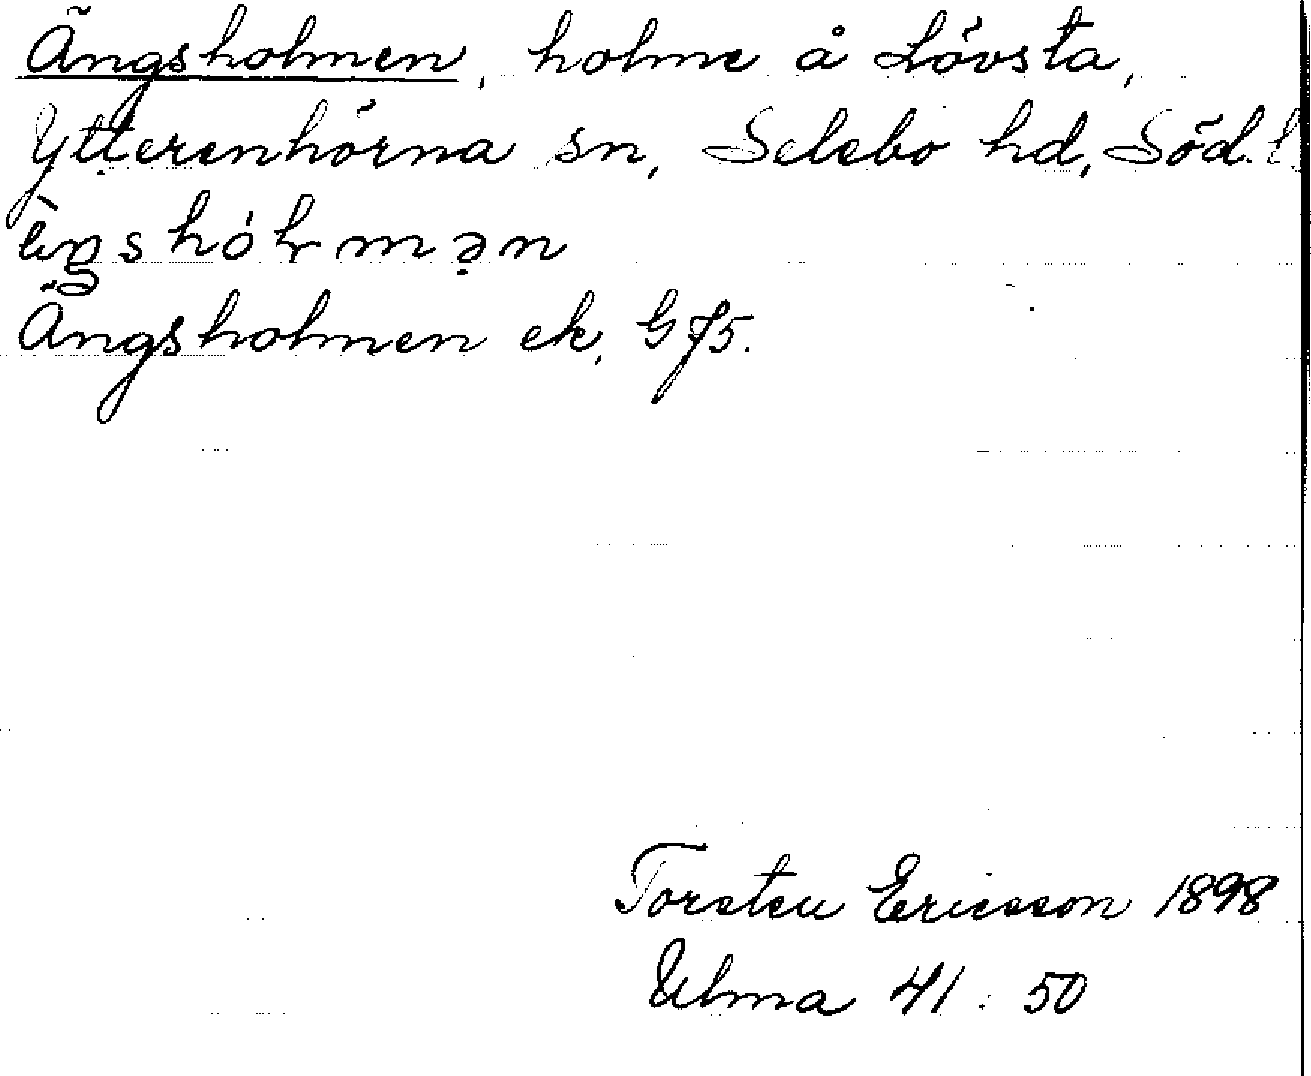 Ängsholmen, holme å Lövsta,
Ytterenhörna sn, Selebo hd, Söd.l.
Ängsholmen ek, G f5.
Torsten Ericsson 1898
Ulma 41:50